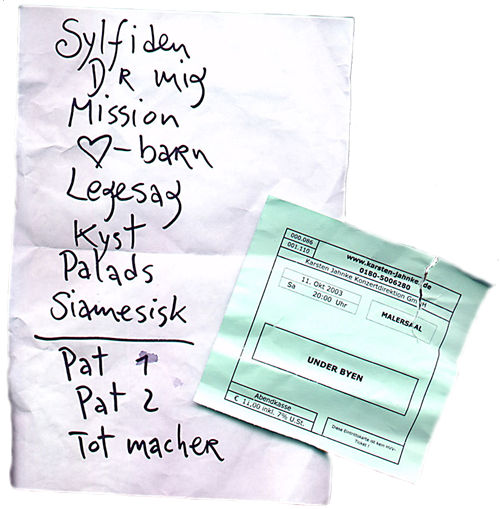 Sylfiden
D R mig
Mission
♡-barn
Legesag
Kyst
Palads
Siamesisk
Pat 1
Pat 2
Tot macher
000.086
001.110
www.karsten-jahnke.de
0180-5006280
Karsten Jahnke Konzertdirektion GmbH
11. Okt 2003
Sa 20:00 Uhr
MALERSAAL
UNDER BYEN
Abendkasse
€ 11.00 inkl. 7% U.St.
Diese Eintrittskarte ist kein
Ticket !